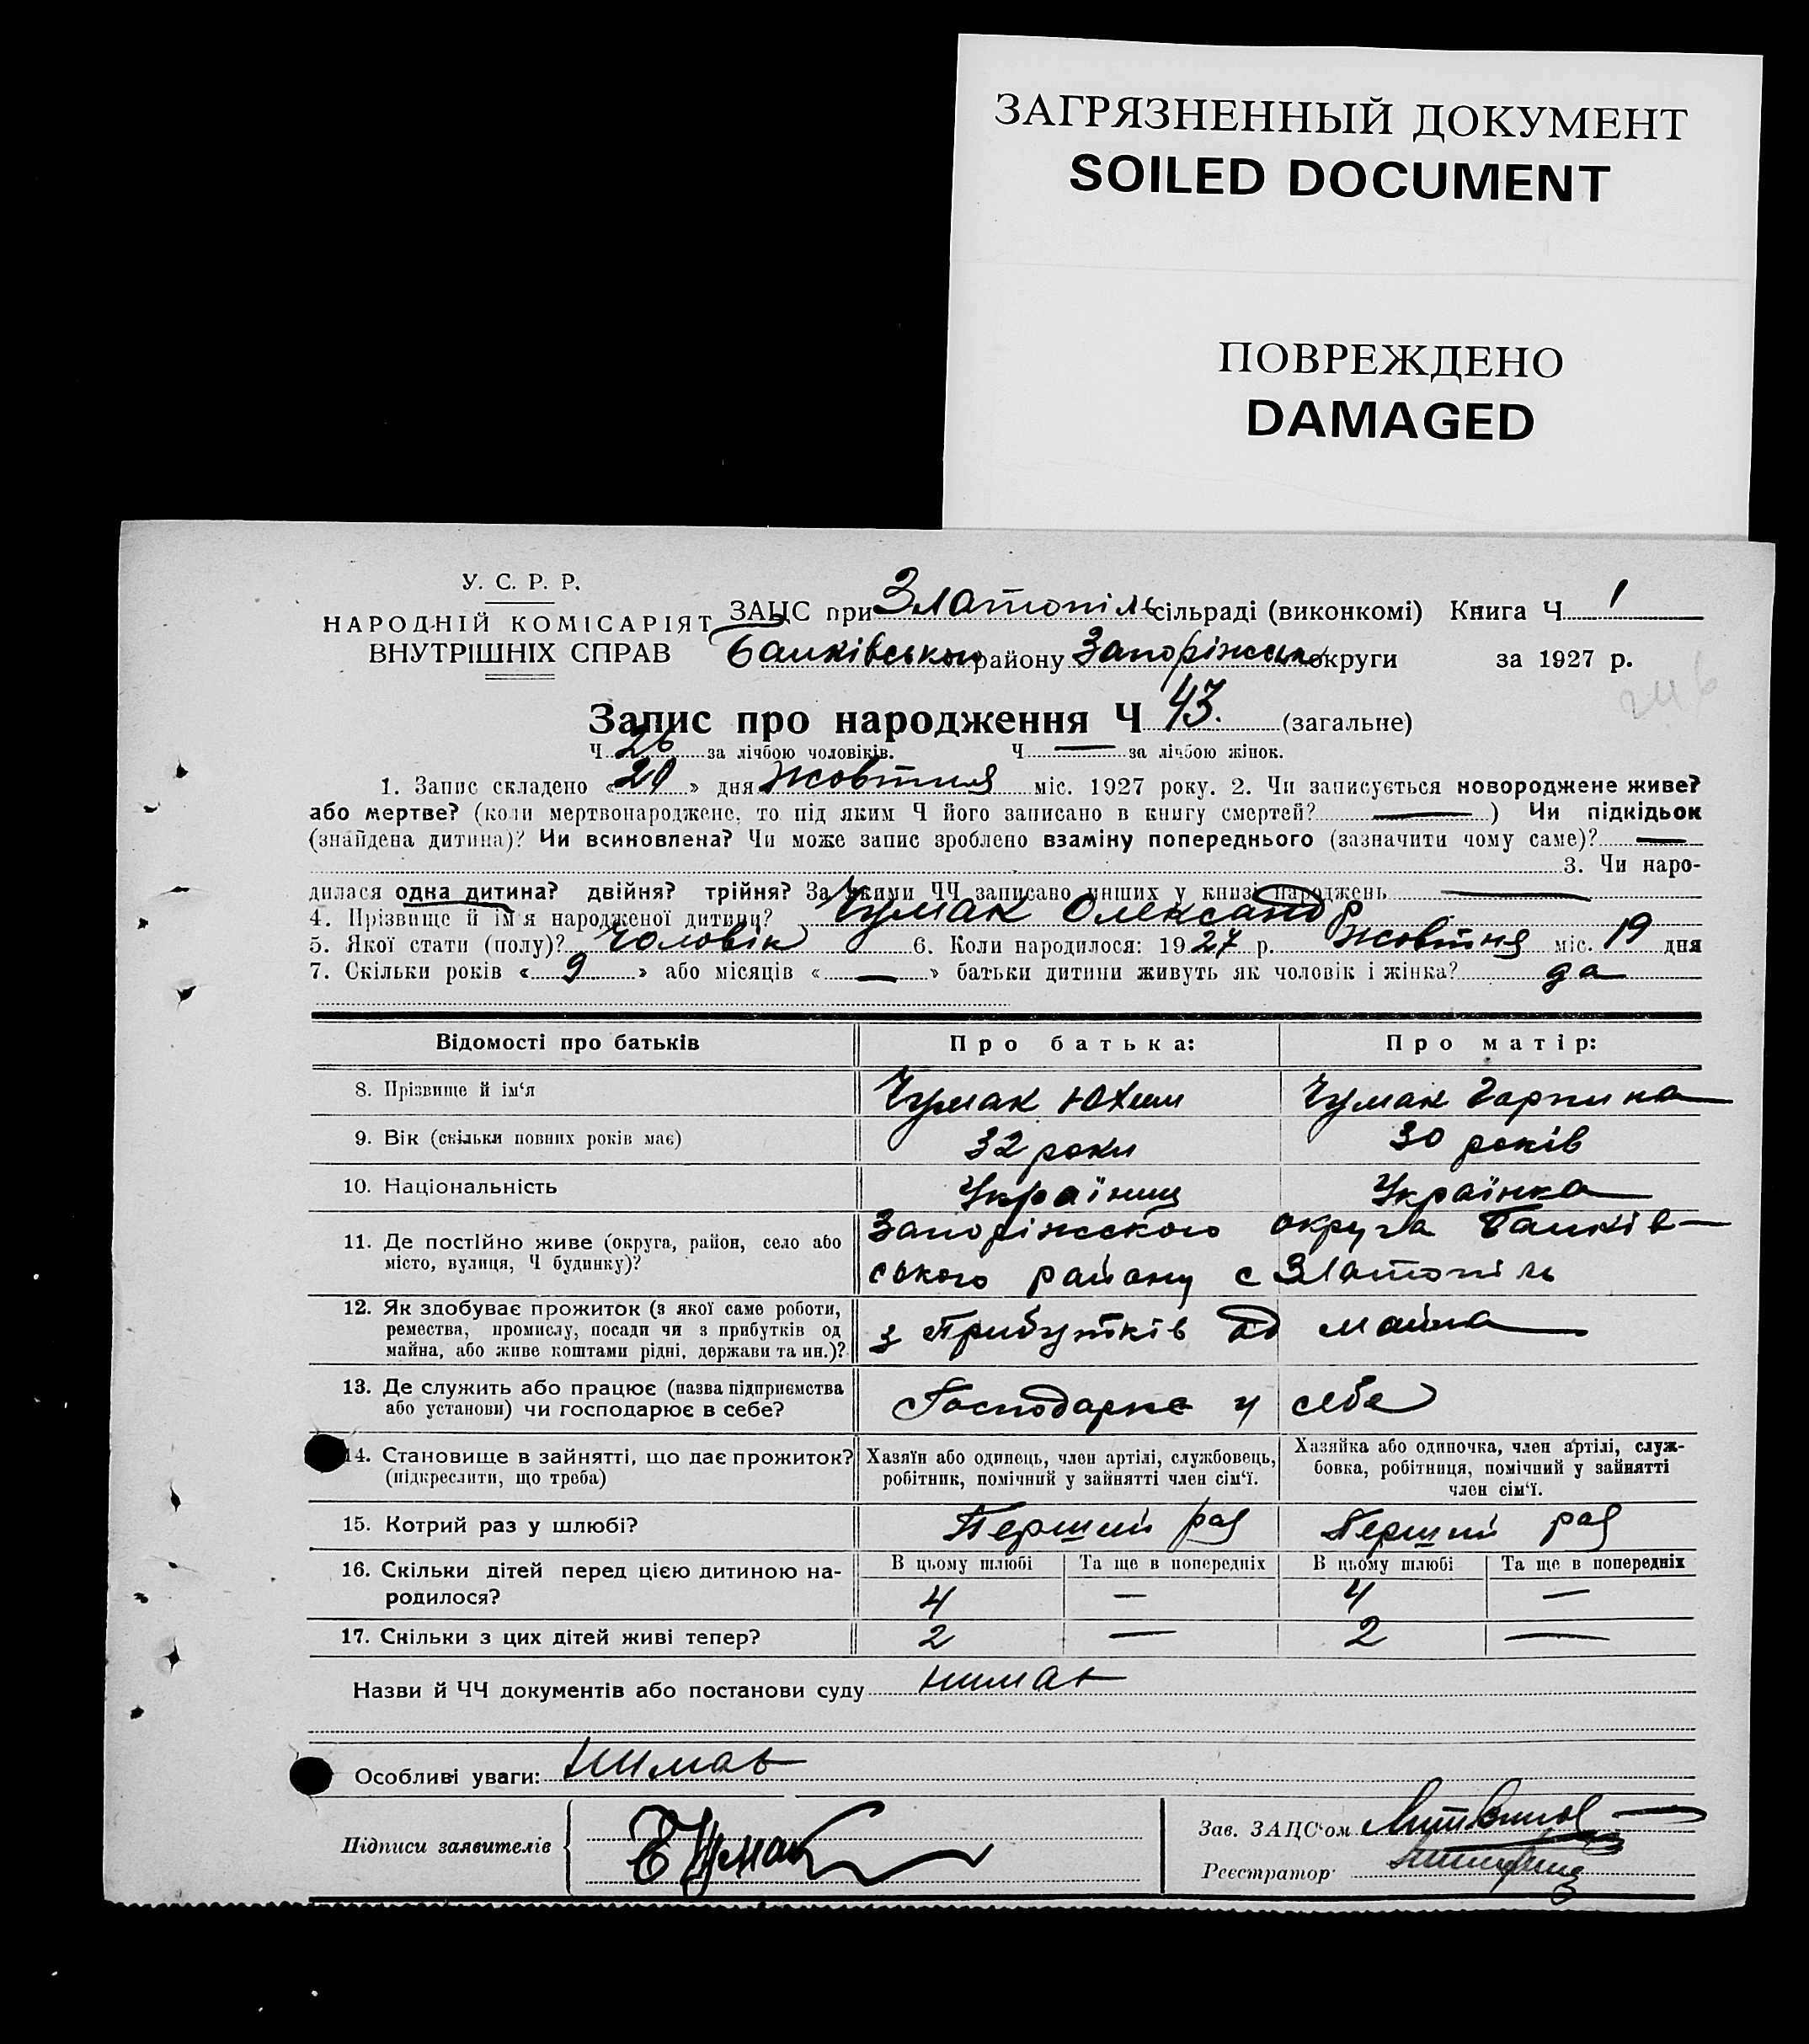 ЗАГРЯЗНЕННЫЙ ДОКУМЕНТ
SOILED DOCUMENT
ПОВРЕЖДЕНО
DAMAGED
У. С. Р. Р.
НАРОДНІЙ КОМІСАРІЯТ
ВНУТРІШНІХ СПРАВ
ЗАЦС при Златопіль сільраді (виконкомі) Книга Ч 1
району округи за 1927 р.
Запис про народження Ч 43. (загальне)
Ч 26 за лічбою чоловіків. Ч — за лічбою жінок.
1. Запис складено « 20 » дня жовтня міс. 1927 року. 2. Чи записується новороджене живе?
або мертве? (коли мертвонароджене, то під яким Ч його записано в книгу смертей? — ) Чи підкідьок
(знайдена дитина)? Чи всиновлена? Чи може запис зроблено взаміну попереднього (зазначити чому саме)? —
3. Чи наро-
дилася одна дитина? двійня? трійня? За якими ЧЧ записано инших у книзі народжень —
4. Прізвище й ім'я народженої дитини? Чумак Олександр
5. Якої стати (полу)? Чоловік 6. Коли народилося: 1927 р. жовтня міс. 19 дня
7. Скільки років « 9 » або місяців « — » батьки дитини живуть як чоловік і жінка? да
Відомості про батьків Про батька: Про матір:
8. Прізвище й ім'я Чумак Юхим Чумак Горпина
9. Вік (скільки повних років має) 32 роки 30 років
10. Національність Українец Українка
11. Де постійно живе (округа, район, село або
місто, вулиця, Ч будинку)?
Запоріжского округа Банків-
ського району с Златопіль
12. Як здобуває прожиток (з якої саме роботи,
ремества, промислу, посади чи з прибутків од
майна, або живе коштами рідні, держави та ин.)?
з прибутків од майна
13. Де служить або працює (назва підприємства
або установи) чи господарює в себе?
Господарке у себе
14. Становище в зайнятті, що дає прожиток?
(підкреслити, що треба)
Хазяїн або одинець, член артілі, службовець,
робітник, помічний у зайнятті член сім'ї.
Хазяйка або одиночка, член артілі, служ-
бовка, робітниця, помічний у зайнятті
член сім'ї.
15. Котрий раз у шлюбі? Перший раз Перший раз
16. Скільки дітей перед цією дитиною на-
родилося?
В цьому шлюбі Та ще в попередніх В цьому шлюбі Та ще в попередніх
4 — 4 —
17. Скільки з цих дітей живі тепер? 2 — 2 —
Назви й ЧЧ документів або постанови суду нимає
Особливі уваги: нимає
Підписи заявителів Е Чумак
Зав. ЗАЦС'ом
Реєстратор